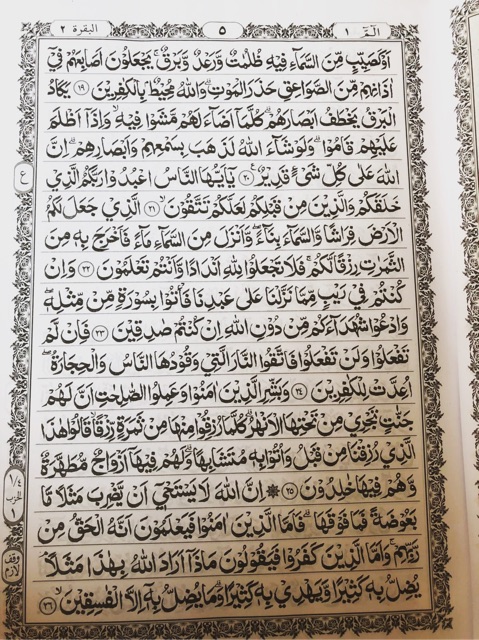 البقرة ٢ ٥ الٓمّٓ ١
اَوْ كَصَيِّبٍ مِّنَ السَّمَآءِ فِيْهِ ظُلُمٰتٌ وَّرَعْدٌ وَّبَرْقٌ ۚ يَجْعَلُوْنَ اَصَابِعَهُمْ فِيْۤ
اٰذَانِهِمْ مِّنَ الصَّوَاعِقِ حَذَرَ الْمَوْتِ ؕ وَاللهُ مُحِيْطٌ بِالْكٰفِرِيْنَ ﴿۱۹﴾ يَكَادُ
الْبَرْقُ يَخْطَفُ اَبْصَارَهُمْ ؕ كُلَّمَاۤ اَضَآءَ لَهُمْ مَّشَوْا فِيْهِ ۙ وَاِذَاۤ اَظْلَمَ
عَلَيْهِمْ قَامُوْا ؕ وَلَوْ شَآءَ اللهُ لَذَهَبَ بِسَمْعِهِمْ وَاَبْصَارِهِمْ ؕ اِنَّ
اللهَ عَلٰى كُلِّ شَىْءٍ قَدِيْرٌ ﴿۲۰﴾ يٰۤاَيُّهَا النَّاسُ اعْبُدُوْا رَبَّكُمُ الَّذِيْ
خَلَقَكُمْ وَالَّذِيْنَ مِنْ قَبْلِكُمْ لَعَلَّكُمْ تَتَّقُوْنَ ﴿۲۱﴾ الَّذِيْ جَعَلَ لَكُمُ
الْاَرْضَ فِرَاشًا وَّالسَّمَآءَ بِنَآءً ۪ وَّاَنْزَلَ مِنَ السَّمَآءِ مَآءً فَاَخْرَجَ بِهٖ مِنَ
الثَّمَرٰتِ رِزْقًا لَّكُمْ ۚ فَلَا تَجْعَلُوْا لِلّٰهِ اَنْدَادًا وَّاَنْتُمْ تَعْلَمُوْنَ ﴿۲۲﴾ وَاِنْ
كُنْتُمْ فِيْ رَيْبٍ مِّمَّا نَزَّلْنَا عَلٰى عَبْدِنَا فَاْتُوْا بِسُوْرَةٍ مِّنْ مِّثْلِهٖ ۪
وَادْعُوْا شُهَدَآءَكُمْ مِّنْ دُوْنِ اللهِ اِنْ كُنْتُمْ صٰدِقِيْنَ ﴿۲۳﴾ فَاِنْ لَّمْ
تَفْعَلُوْا وَلَنْ تَفْعَلُوْا فَاتَّقُوا النَّارَ الَّتِيْ وَقُوْدُهَا النَّاسُ وَالْحِجَارَةُ ۖ
اُعِدَّتْ لِلْكٰفِرِيْنَ ﴿۲۴﴾ وَبَشِّرِ الَّذِيْنَ اٰمَنُوْا وَعَمِلُوا الصّٰلِحٰتِ اَنَّ لَهُمْ
جَنّٰتٍ تَجْرِيْ مِنْ تَحْتِهَا الْاَنْهٰرُ ؕ كُلَّمَا رُزِقُوْا مِنْهَا مِنْ ثَمَرَةٍ رِّزْقًا ۙ قَالُوْا هٰذَا
الَّذِيْ رُزِقْنَا مِنْ قَبْلُ ۙ وَاُتُوْا بِهٖ مُتَشَابِهًا ؕ وَلَهُمْ فِيْهَاۤ اَزْوَاجٌ مُّطَهَّرَةٌ ۙ
وَّهُمْ فِيْهَا خٰلِدُوْنَ ﴿۲۵﴾ ۞ اِنَّ اللهَ لَا يَسْتَحْيٖۤ اَنْ يَّضْرِبَ مَثَلًا مَّا
بَعُوْضَةً فَمَا فَوْقَهَا ؕ فَاَمَّا الَّذِيْنَ اٰمَنُوْا فَيَعْلَمُوْنَ اَنَّهُ الْحَقُّ مِنْ
رَّبِّهِمْ ۚ وَاَمَّا الَّذِيْنَ كَفَرُوْا فَيَقُوْلُوْنَ مَاذَاۤ اَرَادَ اللهُ بِهٰذَا مَثَلًا ۘ
يُضِلُّ بِهٖ كَثِيْرًا وَّيَهْدِيْ بِهٖ كَثِيْرًا ؕ وَمَا يُضِلُّ بِهٖۤ اِلَّا الْفٰسِقِيْنَ ﴿۲۶﴾
ع
١/٤
الحزب
١
وقف
لازم